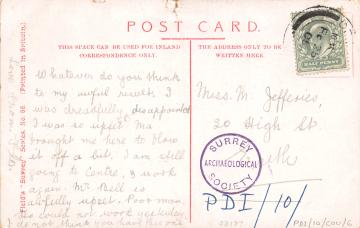 POST CARD.
THIS SPACE CAN BE USED FOR INLAND
CORRESPONDENCE ONLY.
THE ADDRESS ONLY TO BE
WRITTEN HERE.
HALF PENNY
Field's "Surrey" Series No. 66 (Printed in Britain).
Whatever do you think
to my awful result. I
was dreadfully disappointed
I was so upset. Ma
brought me here to blow
it off a bit. I am still
going to Centre, & work
again. Mr. Bell is
awfully upset. Poor man,
he could not work yesterday.
I do not think you have this one
Miss. M. Jefferies,
20 High St.
SURREY
ARCHAEOLOGICAL
SOCIETY
PDI/10/
PDI/10/COU/6